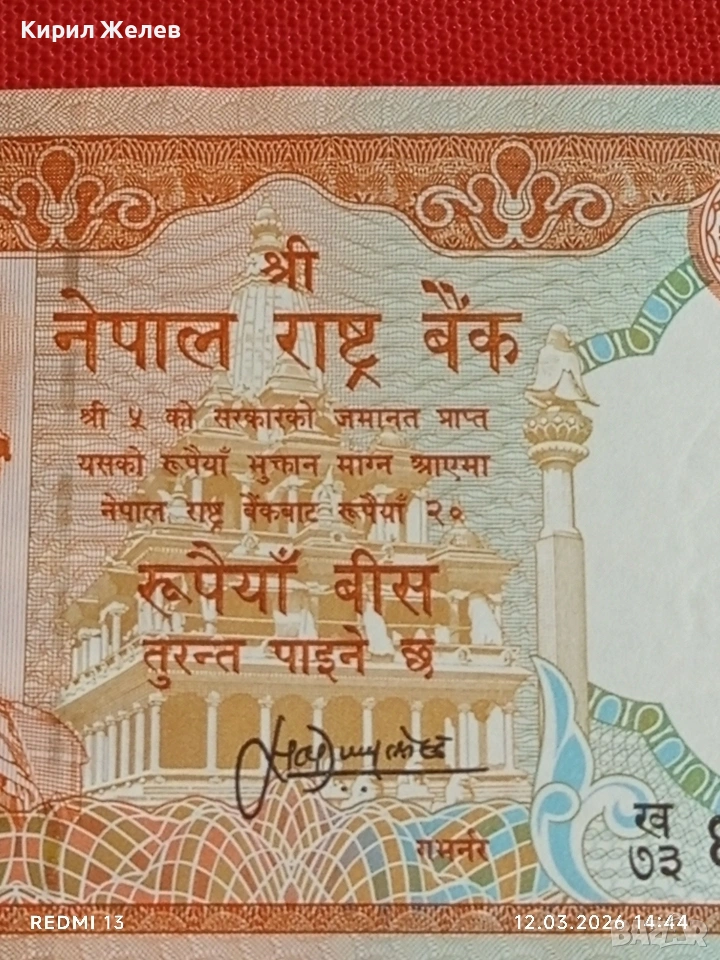 Кирил Желев
श्री
नेपाल राष्ट्र बैंक
श्री ५ को सरकारको जमानत प्राप्त
यसको रूपैयाँ भुक्तान माग्न आएमा
नेपाल राष्ट्र बैंकबाट रूपैयाँ २०
रूपैयाँ बीस
तुरन्त पाइने छ
गभर्नर
ख
७३
REDMI 13
12.03.2026 14:44
BAZAR